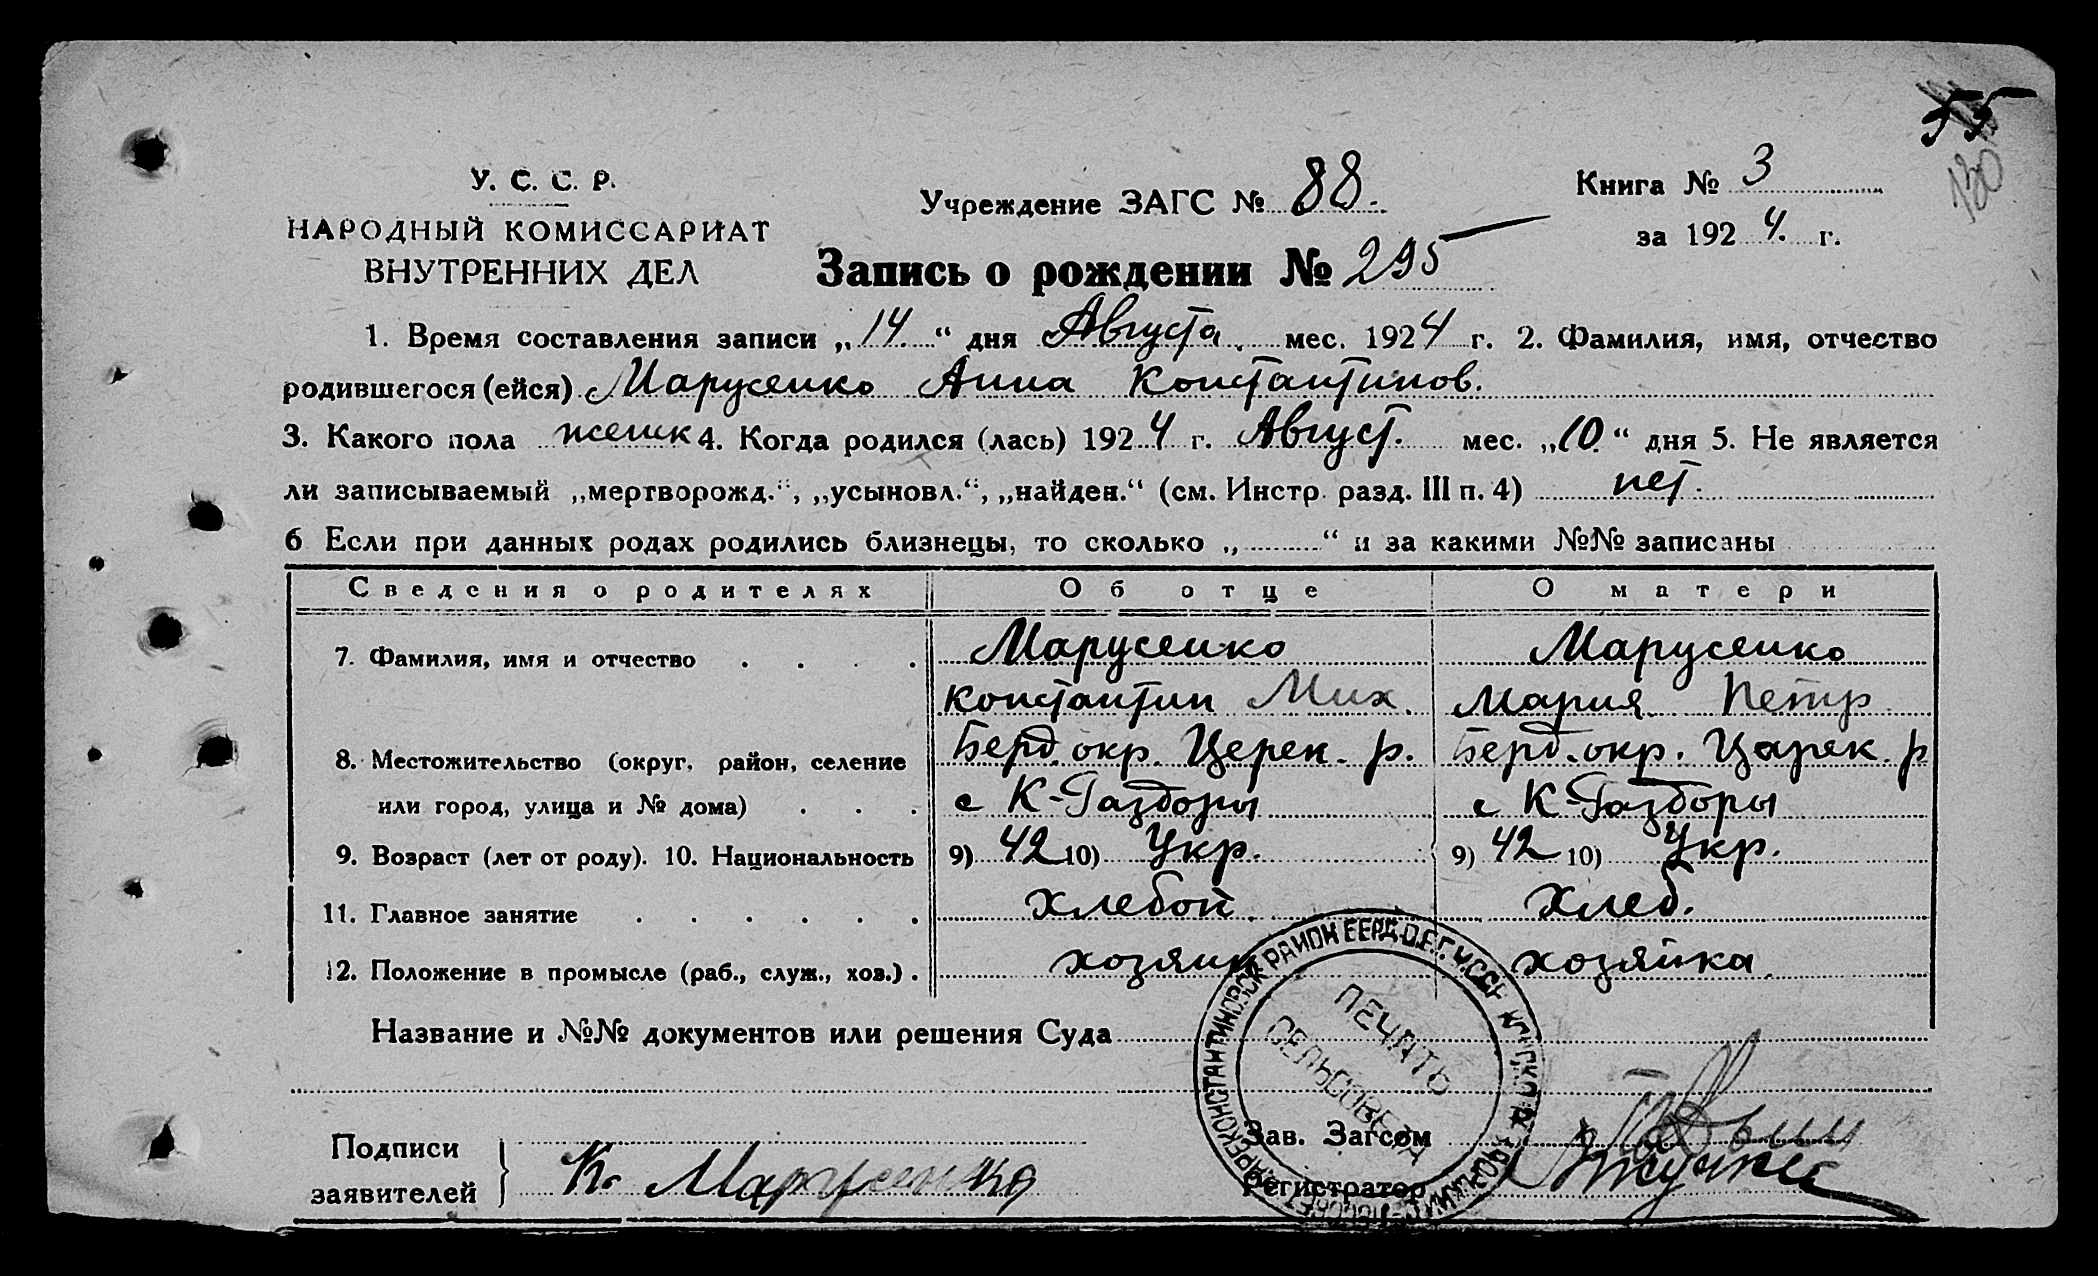 55
130
У. С. С. Р.
НАРОДНЫЙ КОМИССАРИАТ
ВНУТРЕННИХ ДЕЛ
Учреждение ЗАГС № 88.
Книга № 3
за 192 4. г.
Запись о рождении № 295
1. Время составления записи „ 14. “ дня Августа. мес. 192 4 г. 2. Фамилия, имя, отчество
родившегося (ейся) Марусенко Анна Константинов.
3. Какого пола женск 4. Когда родился (лась) 192 4 г. Август. мес. „ 10. “ дня 5. Не является
ли записываемый „мертворожд.“, „усыновл.“, „найден.“ (см. Инстр. разд. III п. 4) нет.
6 Если при данных родах родились близнецы, то сколько „ “ и за какими №№ записаны
Сведения о родителях Об отце О матери
7. Фамилия, имя и отчество Марусенко Марусенко
Константин Мих. Мария Петр
8. Местожительство (округ, район, селение Берд. окр. Церек. р. Берд. окр. Царек. р
или город, улица и № дома) с К-Газборы с К-Газборы
9. Возраст (лет от роду). 10. Национальность 9) 42 10) Укр. 9) 42 10) Укр.
11. Главное занятие хлебоп Хлеб.
12. Положение в промысле (раб., служ., хоз.) хозяин хозяйка
Название и №№ документов или решения Суда
ЦАРЕКОНСТАНТИНОВСК РАЙОН БЕРД.О.Е.Г. У.ССР
ПЕЧАТЬ
СЕЛЬСОВЕТА
Подписи
заявителей К. Марусенко
Зав. Загсом
Регистратор